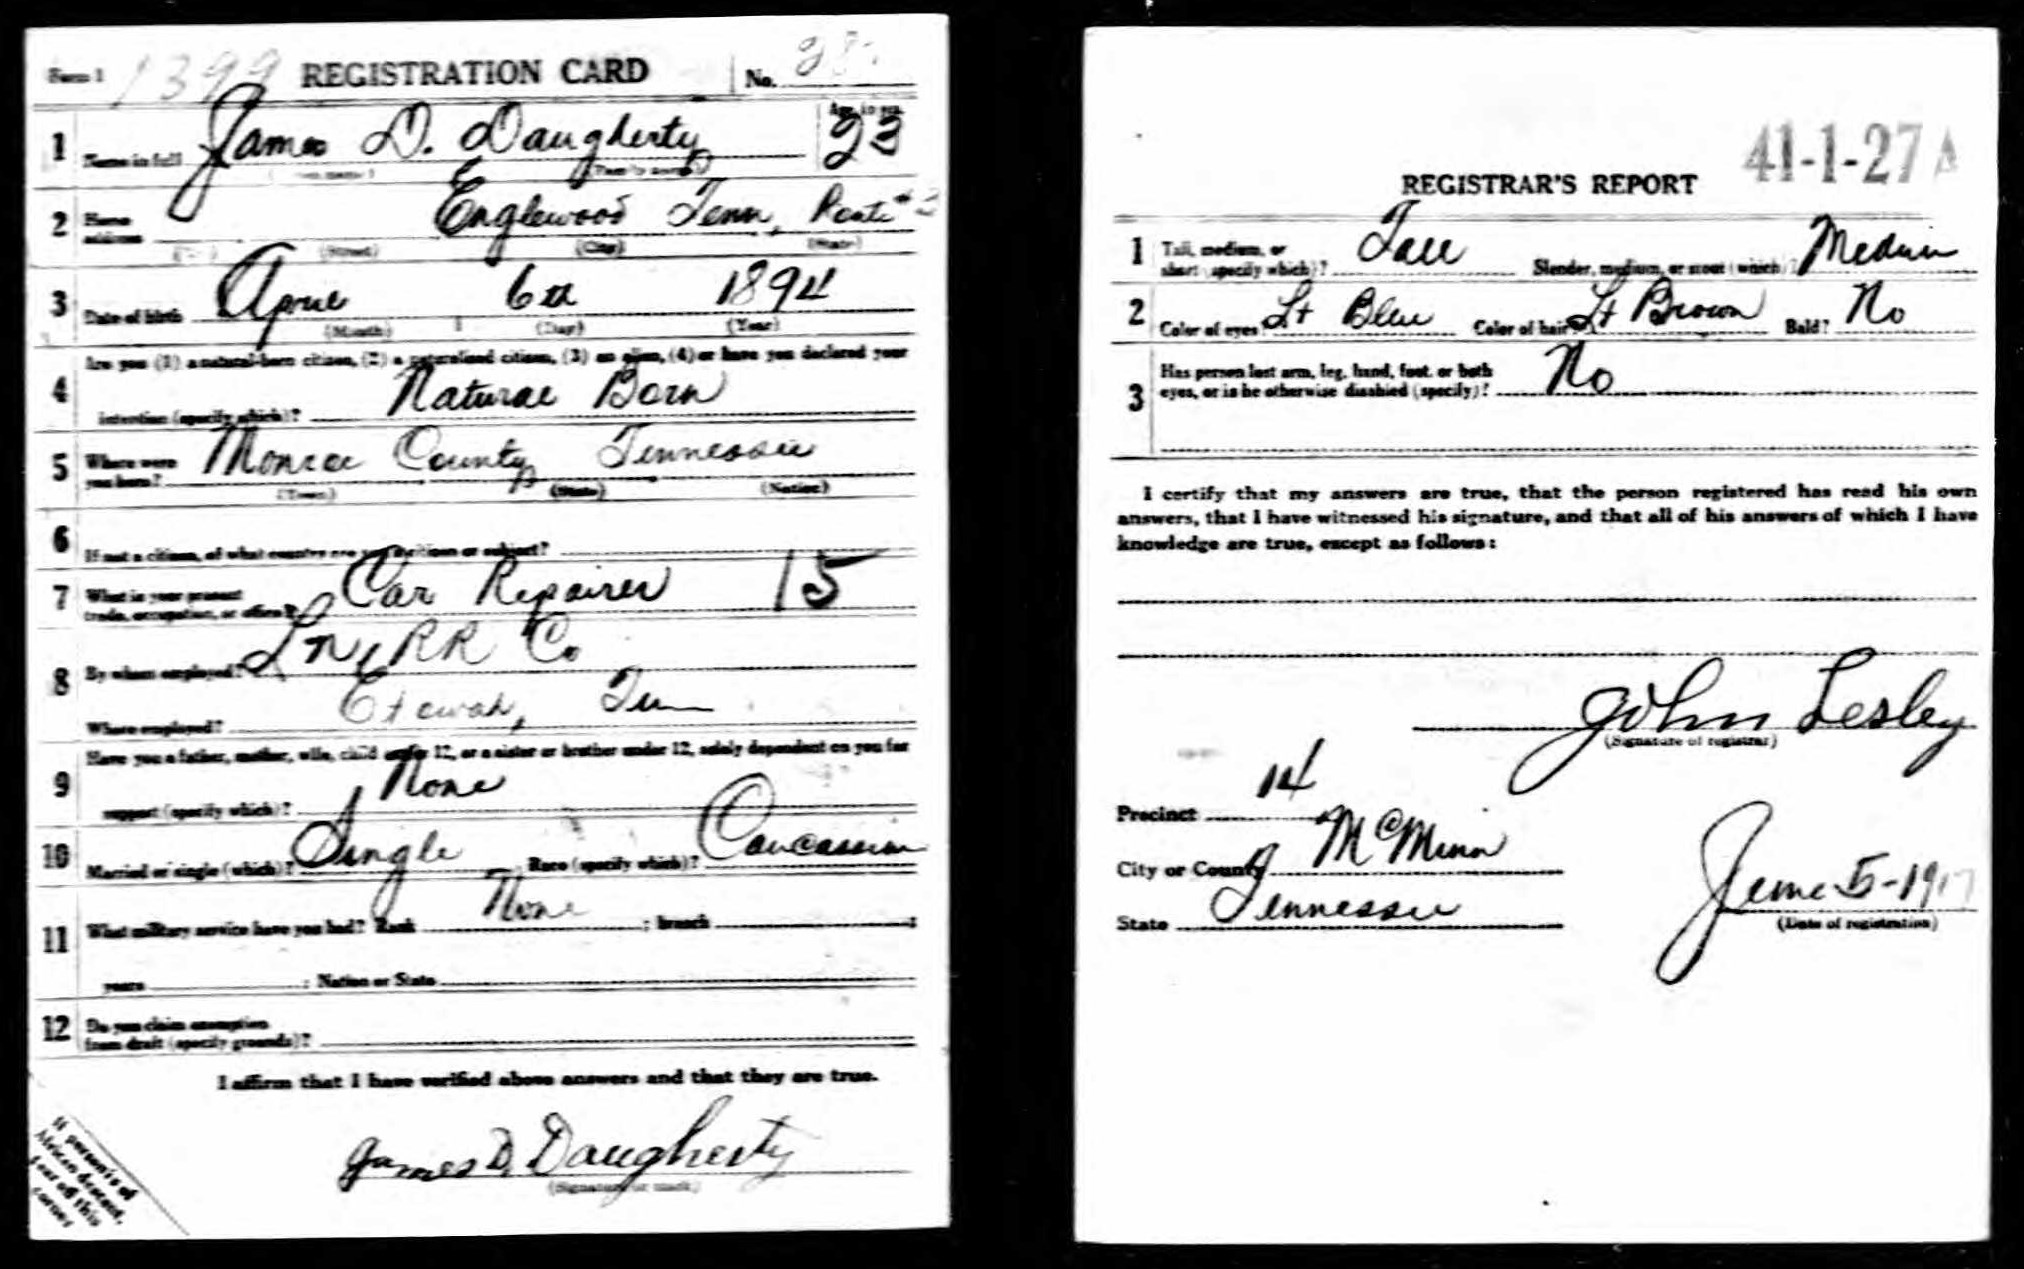 Form 1 1399 REGISTRATION CARD No.
1 Name in full James D. Daugherty Age, in yrs. 23
(Family name)
2 Home address Englewood Tenn, Route #3
(Street) (City) (State)
3 Date of birth April 6th 1894
(Month) (Day) (Year)
4 Are you (1) a natural-born citizen, (2) a naturalized citizen, (3) an alien, (4) or have you declared your
intention (specify which)? Natural Born
5 Where were you born? Monroe County Tennessee
(Town) (State) (Nation)
6 If not a citizen, of what country are you a citizen or subject?
7 What is your present trade, occupation, or office? Car Repairer 15
8 By whom employed? L N RR Co
Where employed? Etowah, Tenn
9 Have you a father, mother, wife, child under 12, or a sister or brother under 12, solely dependent on you for
support (specify which)? None
10 Married or single (which)? Single Race (specify which)? Caucassian
11 What military service have you had? Rank None ; branch ;
years ; Nation or State
12 Do you claim exemption from draft (specify grounds)?
I affirm that I have verified above answers and that they are true.
James D. Daugherty
(Signature or mark)
If person is of
African descent,
tear off this
corner
41-1-27 A
REGISTRAR'S REPORT
1 Tall, medium, or short (specify which)? Tall Slender, medium, or stout (which)? Medium
2 Color of eyes Lt Blue Color of hair Lt Brown Bald? No
3 Has person lost arm, leg, hand, foot, or both
eyes, or is he otherwise disabled (specify)? No
I certify that my answers are true, that the person registered has read his own
answers, that I have witnessed his signature, and that all of his answers of which I have
knowledge are true, except as follows:
John Lesley
(Signature of registrar)
Precinct 14
City or County McMinn
State Tennessee
June 5-1917
(Date of registration)